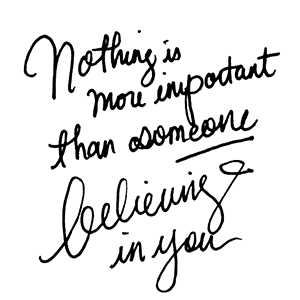 Nothing is
more important
than someone
believing
in you